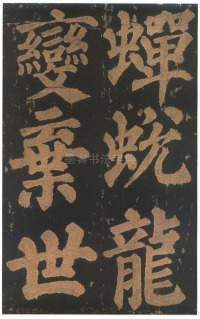 蟬蛻龍
變棄世